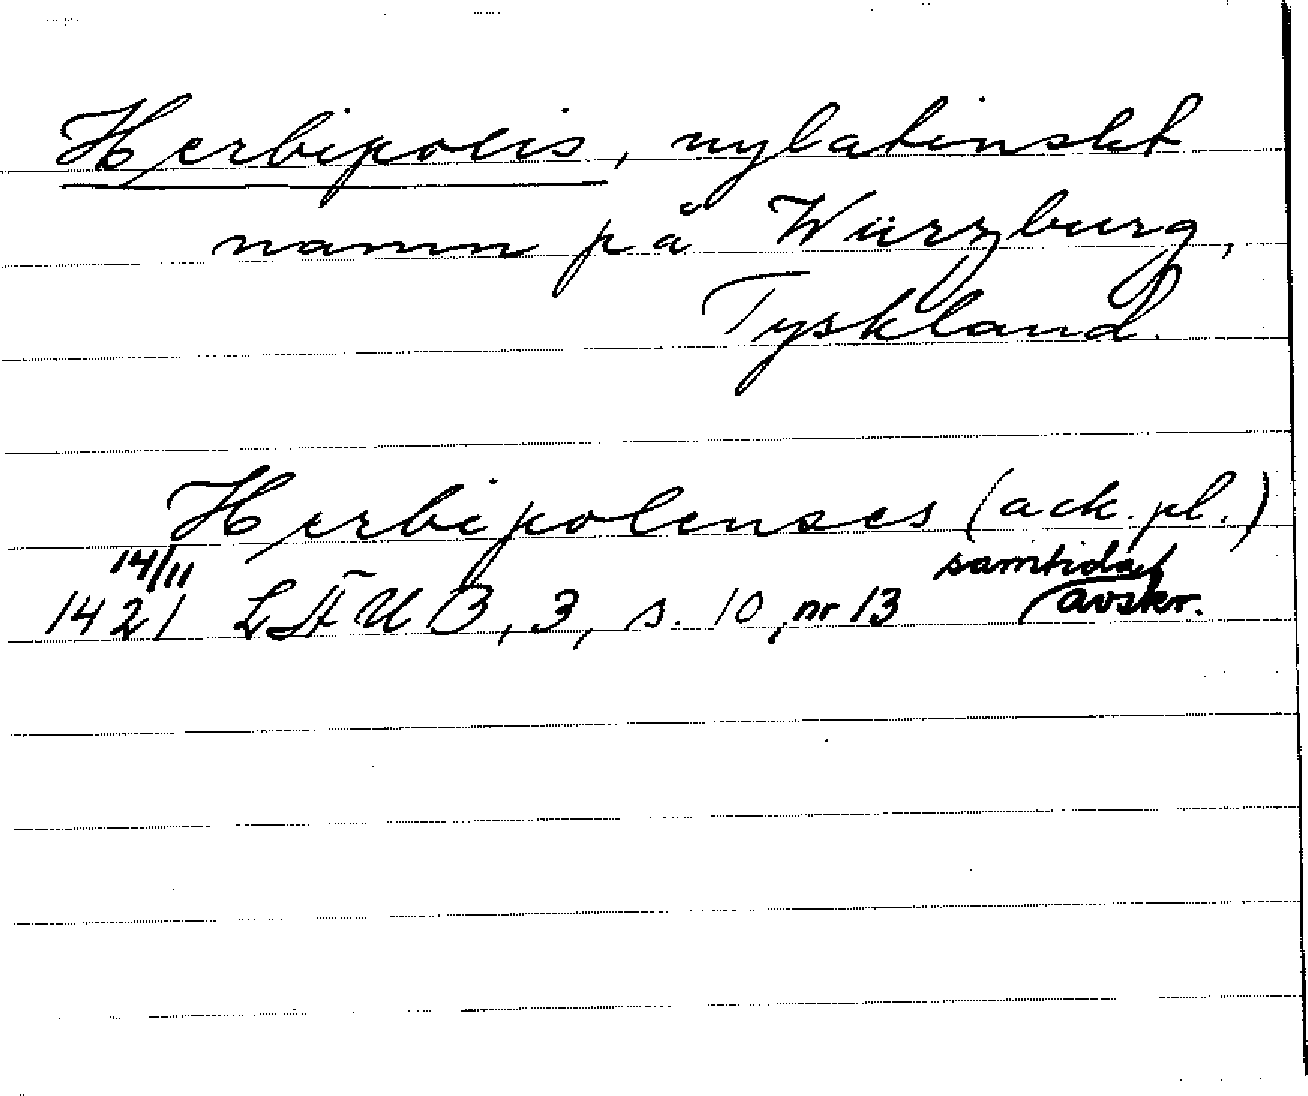 Herbipolis, nylatinskt
namn på Würzburg,
Tyskland.
Herbipolenses (ack. pl.)
14/11 samtida
1421 LFUB, 3, s. 10, nr 13 (avskr.